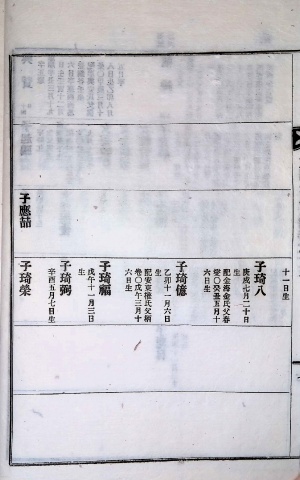 十一日生
子琦八
庚戌七月二十日
生
配金海金氏父春
瑩〇癸丑五月十
六日生
子琦億
乙卯十一月六日
生
配安東權氏父炳
〇戊午三月十
六日生
子琦福
戊午十一月三日
生
子琦弼
辛酉五月七日生
子應喆
子琦榮